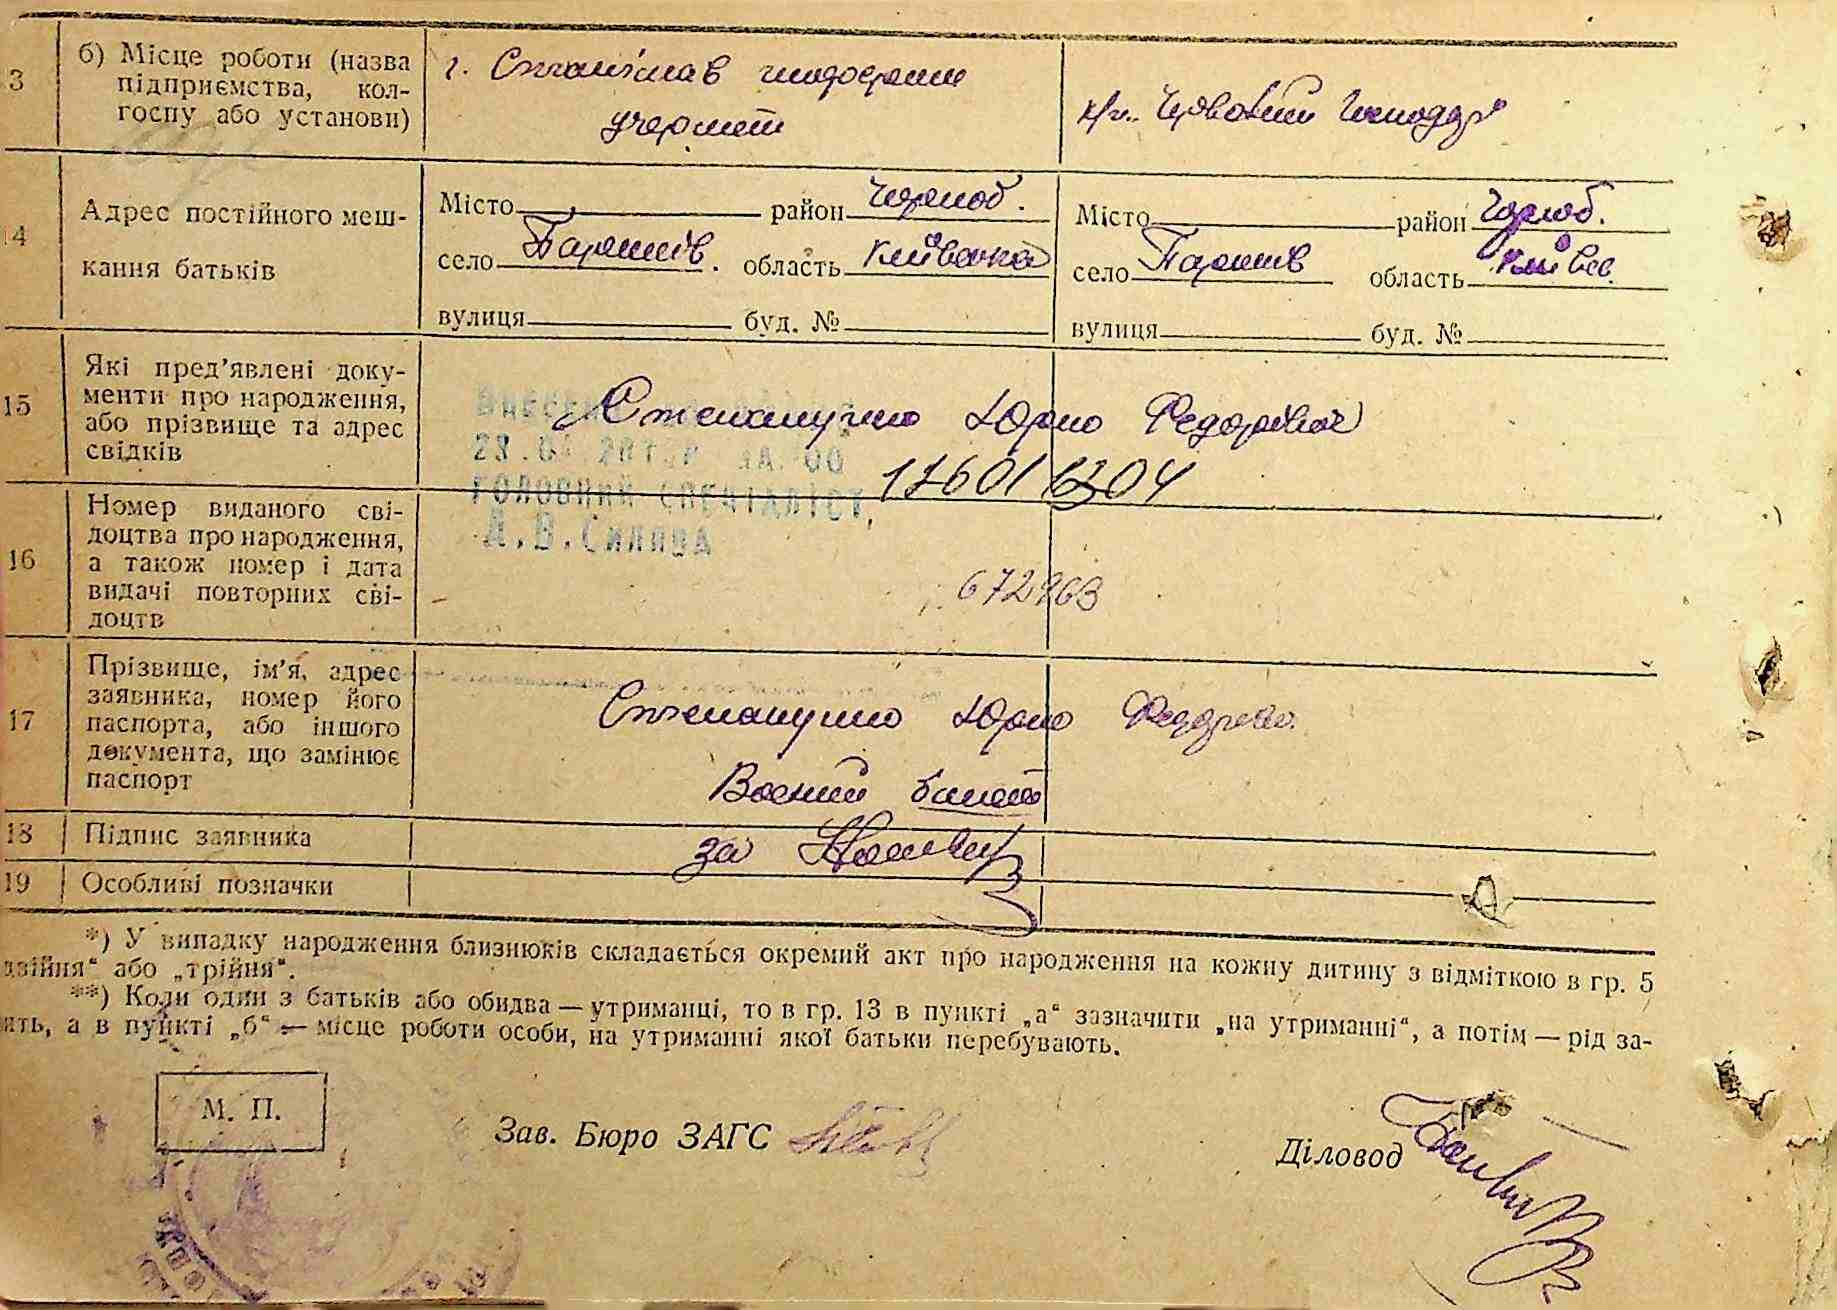 3
б) Місце роботи (назва
підприємства, кол-
госпу або установи)
г. Станіслав
к/г. Червоний Господар
14
Адрес постійного меш-
кання батьків
Місто район Чорноб.
село Паришів. область Київська
вулиця буд. №
Місто район Чорноб.
село Паришів область Київс.
вулиця буд. №
15
Які пред’явлені доку-
менти про народження,
або прізвище та адрес
свідків
Степанушко Юрко Федорович
ГОЛОВНИЙ СПЕЦІАЛІСТ
16
Номер виданого сві-
доцтва про народження,
а також номер і дата
видачі повторних сві-
доцтв
17
Прізвище, ім’я, адрес
заявника, номер його
паспорта, або іншого
документа, що замінює
паспорт
Степанушко Юрко
Воєний билет
18
Підпис заявника
за
19
Особливі позначки
*) У випадку народження близнюків складається окремий акт про народження на кожну дитину з відміткою в гр. 5
„двійня“ або „трійня“.
**) Коли один з батьків або обидва — утриманці, то в гр. 13 в пункті „а“ зазначити „на утриманні“, а потім — рід за-
ить, а в пункті „б“ — місце роботи особи, на утриманні якої батьки перебувають.
М. П.
Зав. Бюро ЗАГС
Діловод